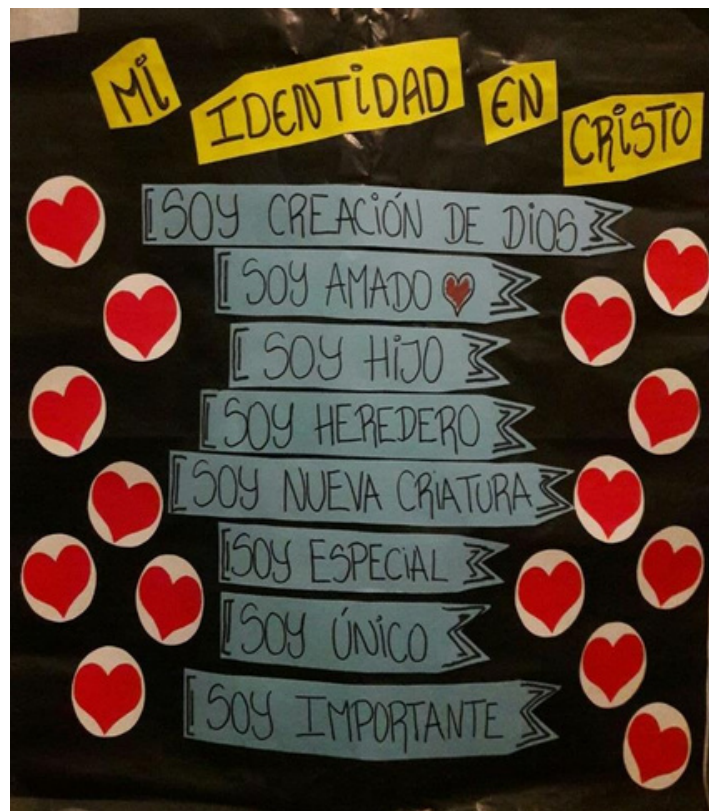 Mi IDENTiDAD EN CRiSTO
SOY CREACiÓN DE DiOS
SOY AMADO
SOY HiJO
SOY HEREDERO
SOY NUEVA CRiATURA
SOY ESPECiAL
SOY ÚNiCO
SOY IMPORTANTE